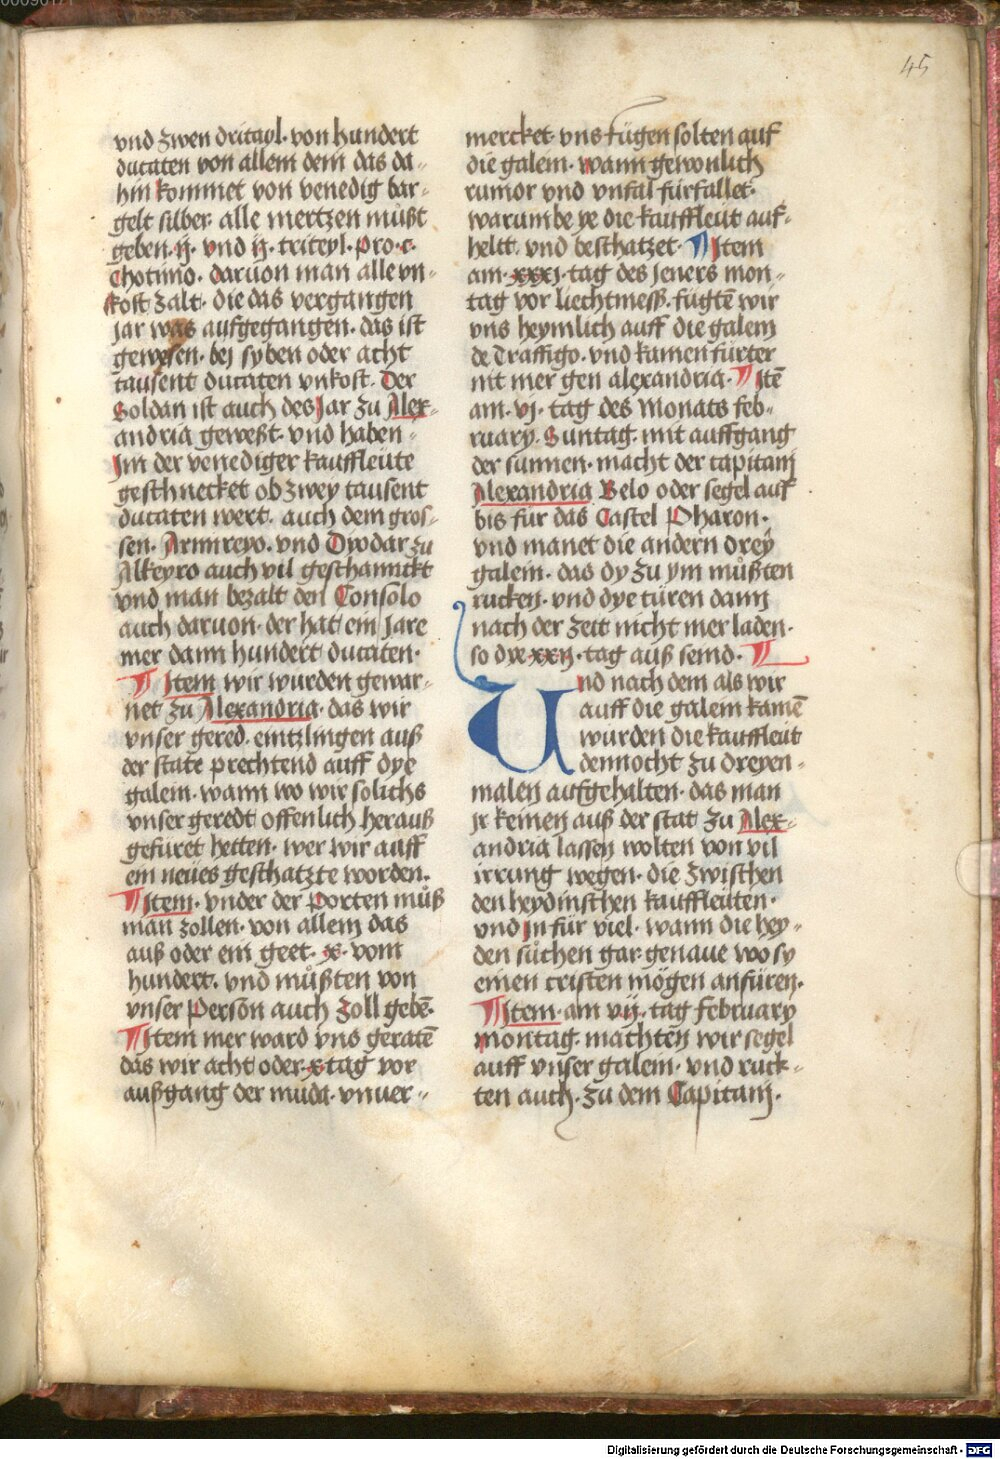 45
vnd zwen dritayl · von hundert
ducaten von allem dem das da-
hin kommet von venedig bar-
gelt silber · alle mertzen müßt
geben · ij · vnd ij · triteyl · pro · c ·
Chotimo · daruon man alle vn-
kost zalt · die das vergangen
jar was aufgegangen · das ist
gewesen · bej syben oder acht
tausent ducaten vnkost · Der
Soldan ist auch des Jar zu Alex-
andria geweßt · vnd haben
Im der venediger kauffleüte
geschencket ob zwey tausent
ducaten wert · auch dem gros-
sen · Armireyo · vnd Dyodar zu
Alkeyro auch vil geschannckt
vnd man bezalt den Consolo
auch daruon · der hat ein jare
mer dann hundert ducaten ·
¶ Item wir wurden gewar-
net zu Alexandria · das wir
vnser gered · eintzlingen auß
der state prechtend auff dye
galein · wann wo wir solichs
vnser geredt offenlich herauß
gefüret hetten · wer wir auff
ein neües geschatzte worden ·
¶ Item · vnder der Porten můß
man zollen · von allem das
auß oder ein geet · x · vom
hundert · vnd müßten von
vnser Person auch Zoll gebē ·
¶ Item mer ward vns geratē
das wir acht oder · x · tag vor
außgang der muda · vnuer-
mercket · vns fügen solten auf
die galein · wann gewonlich
rumor vnd vnfal fürfallet ·
warumbe ye die kauffleüt auf-
heltt · vnd beschatzet · ¶ Item
am · xxxj · tag des Jeners mon-
tag vor liechtmess · fügtē wir
vns heymlich auff die galein
de Traffigo · vnd kamen fürter
nit mer gen alexandria · ¶ Itē
am · vj · tag des Monats feb-
ruary · Suntag · mit auffgang
der sunnen · macht der capitanj
Alexandria Velo oder segel auf
bis für das Castel Pharon ·
vnd manet die andern drey
galein · das dy zu ym můßten
rucken · vnd dye türen dann
nach der zeit nicht mer laden ·
so die xxij · tag auß seind · ¶
Vnd nach dem als wir
auff die galein kamē
wurden die kauffleüt
dennocht zu dreyen-
malen aufgehalten · das man
jr keinen auß der stat zu Alex-
andria lassen wolten von vil
irrung wegen · die zwischen
den heydinschen kauffleüten ·
vnd jn für viel · wann die hey-
den sůchen gar genaue wo sy
einen cristen mögen anfüren ·
¶ Item · am vij · tag february
montag · machten wir segel
auff vnser galein · vnd ruck-
ten auch · zu dem Capitanj ·
Digitalisierung gefördert durch die Deutsche Forschungsgemeinschaft - DFG